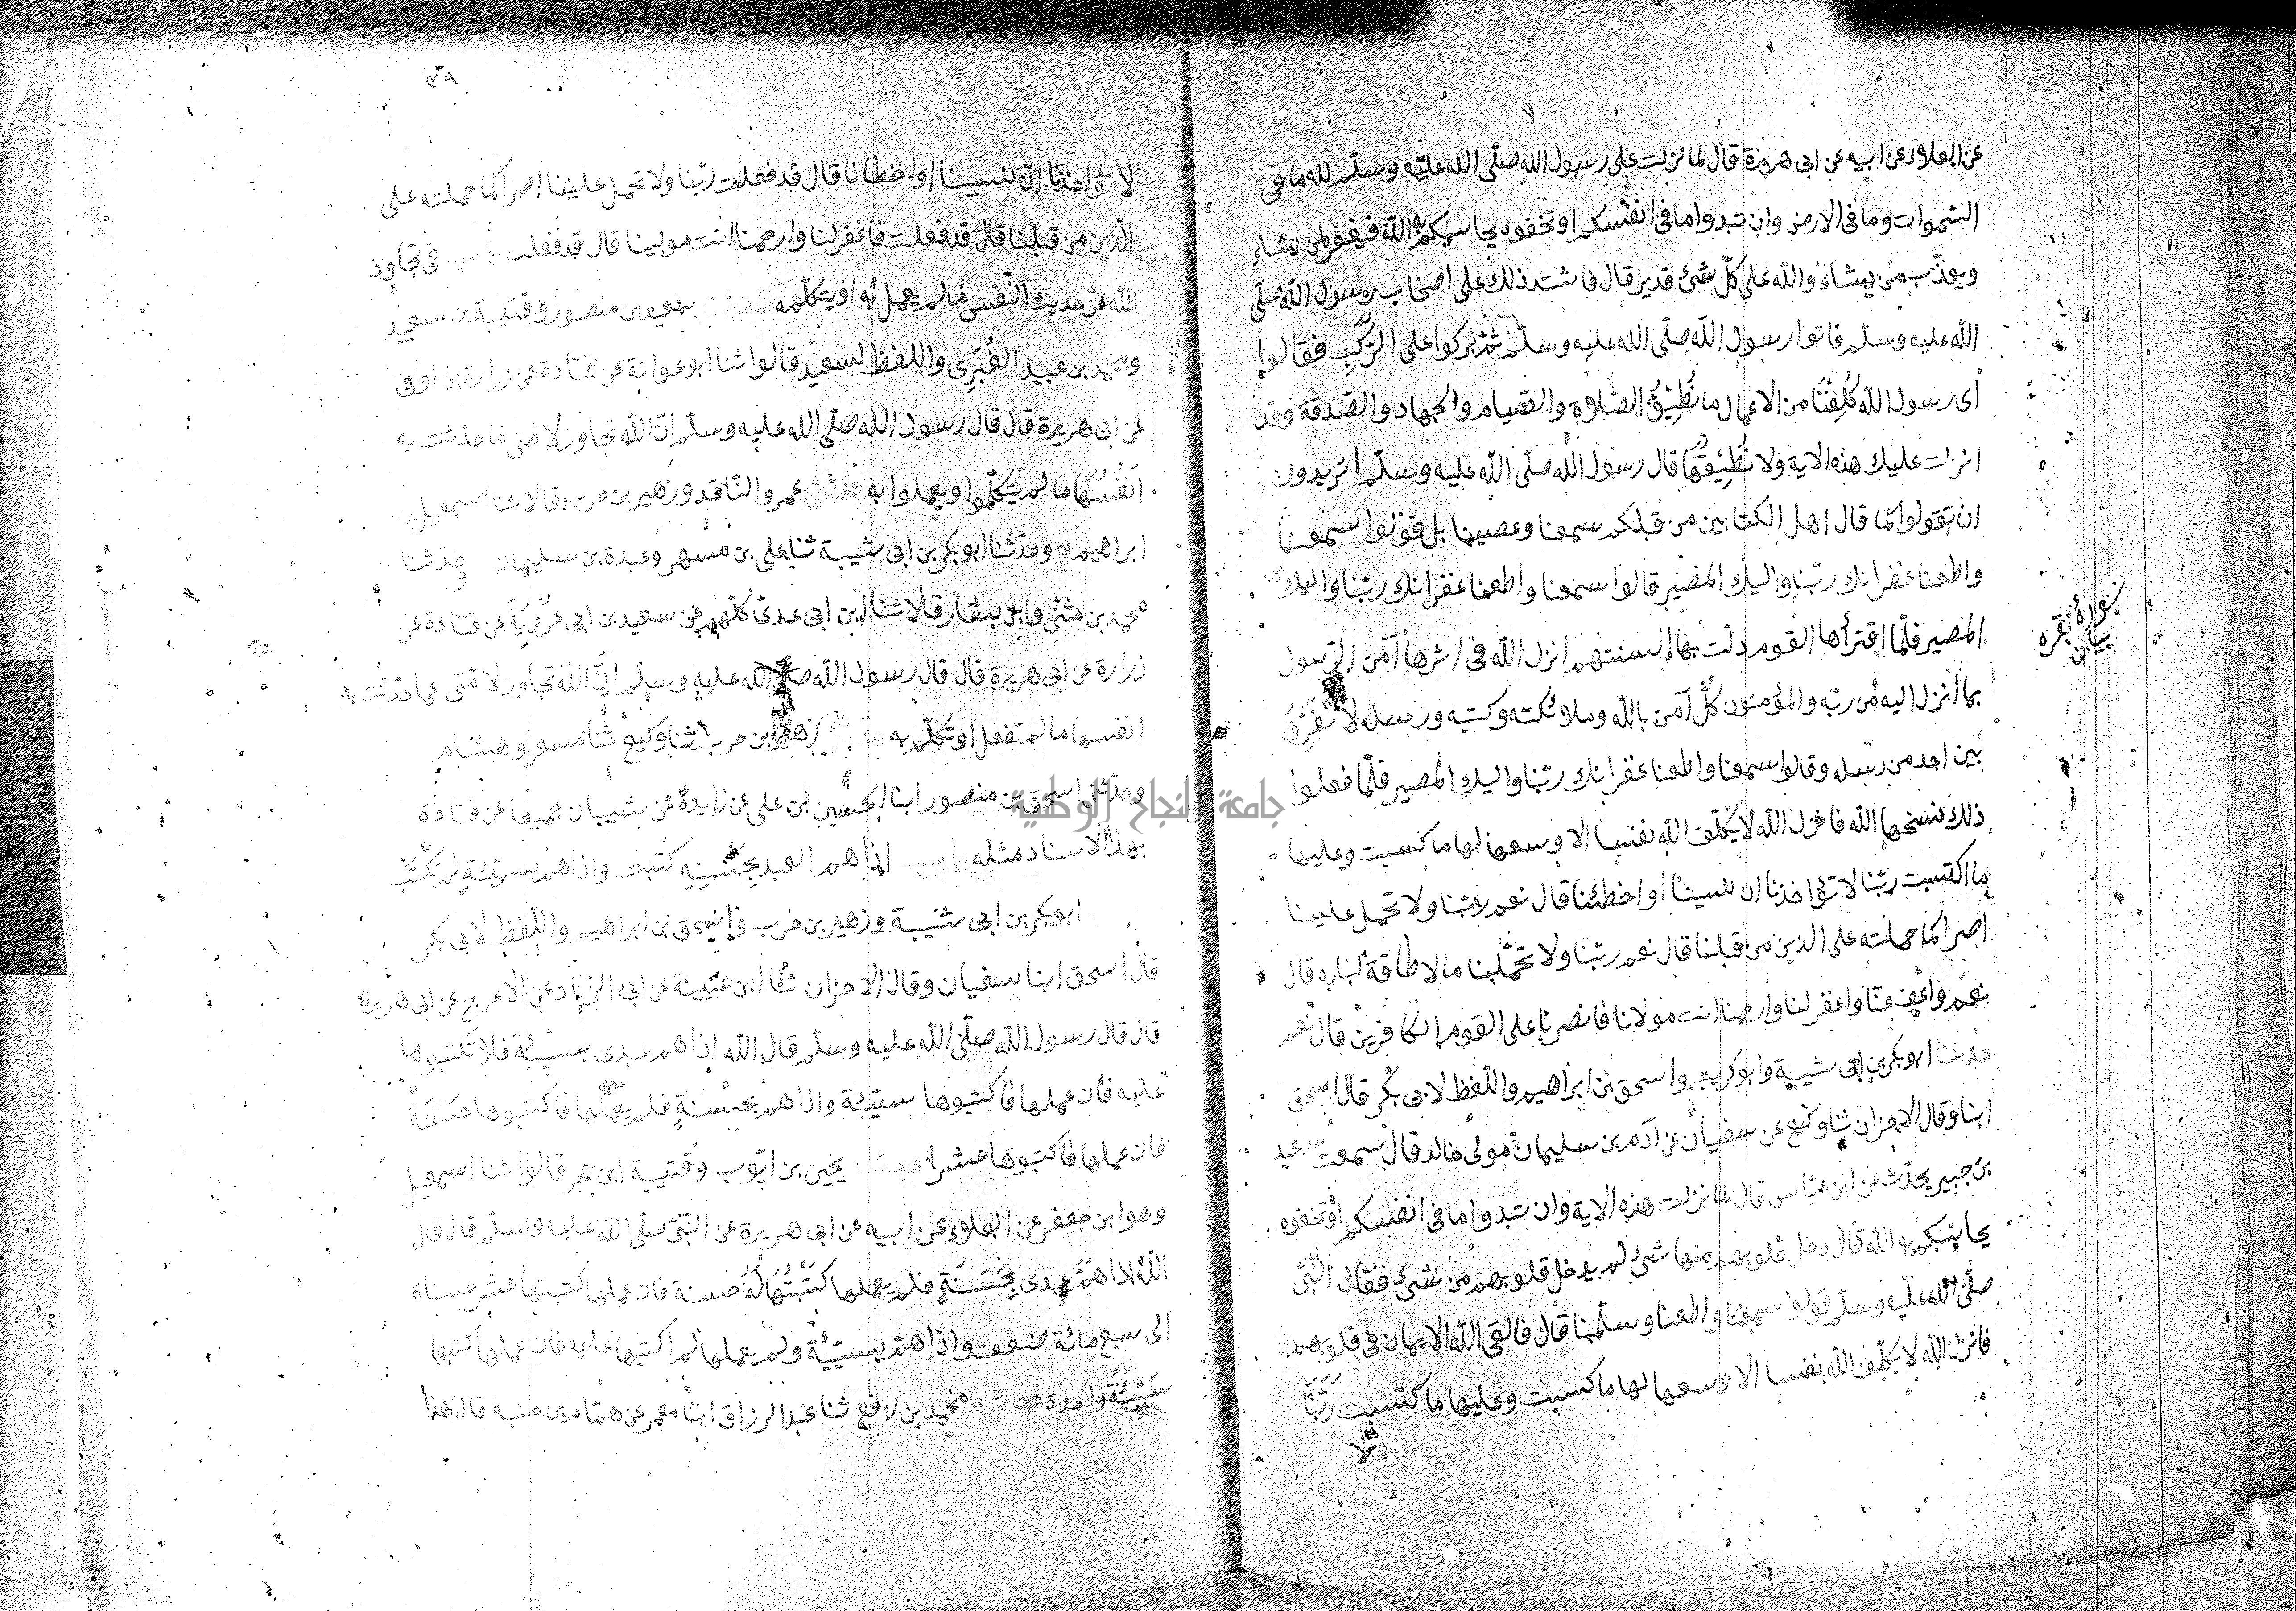 عن العلاء عن ابيه عن ابي هريرة قال لما نزلت على رسول الله صلّى الله عليه وسلّم لله ما في
السّموات وما في الارض وان تبدوا ما في انفسكم او تخفوه يحاسبكم به الله فيغفر لمن يشاء
ويعذّب من يشاء والله على كلّ شئ قدير قال فاشتد ذلك على اصحاب رسول الله صلّى
الله عليه وسلّم فاتوا رسول الله صلّى الله عليه وسلّم ثمّ بركوا على الرّكب فقالوا
اى رسول الله كُلِّفْنَا من الاعمال ما نُطِيْقُ الصّلاة والصّيام والجهاد والصّدقة وقد
انزلت عليك هذه الاية ولا نُطِيْقُهَا قال رسول الله صلّى الله عليه وسلّم اتريدون
ان تقولوا كما قال اهل الكتابين من قبلكم سمعنا وعصينا بل قولوا سمعنا
واطعنا غفرانك ربّنا واليك المصير قالوا سمعنا واطعنا غفرانك ربّنا واليك
المصير فلمّا اقترأها القوم ذلّت بها السنتهم انزل الله في اثرها آمن الرّسول
بما أنزل اليه من ربّه والمؤمنون كلّ آمن بالله وملائكته وكتبه ورسله لا نُفَرِّقُ
بين احد من رسله وقالوا سمعنا واطعنا غفرانك ربّنا واليك المصير فلمّا فعلوا
ذلك نسخها الله فانزل الله لا يكلّف الله نفسا الا وسعها لها ما كسبت وعليها
ما اكتسبت ربّنا لا تؤاخذنا ان نسينا او اخطئنا قال نعم ربّنا ولا تحمل علينا
اصرا كما حملته على الذين من قبلنا قال نعم ربّنا ولا تحمّلنا ما لا طاقة لنا به قال
نعم واعف عنّا واغفر لنا وارحمنا انت مولانا فانصرنا على القوم الكافرين قال نعم
حدثنا ابو بكر بن ابي شيبة وابو كريب واسحق بن ابراهيم واللّفظ لابي بكر قال اسحق
ابنا وقال الاخران ثنا وكيع عن سفيان عن آدم بن سليمان مولى خالد قال سمعت سعيد
بن جبير يحدّث عن ابن عبّاس قال لما نزلت هذه الاية وان تبدوا ما في انفسكم او تخفوه
يحاسبكم به الله قال دخل قلوبهم منها شئ لم يدخل قلوبهم من شئ فقال النّبى
صلّى الله عليه وسلّم قولوا سمعنا واطعنا وسلّمنا قال فالقى الله الايمان في قلوبهم
فانزل الله لا يكلّف الله نفسا الا وسعها لها ما كسبت وعليها ما اكتسبت رَبَّنَا
لا
سورة بقره
بيان
لا تؤاخذنا ان نسينا او اخطانا قال قد فعلت ربّنا ولا تحمل علينا اصرا كما حملته على
الّذين من قبلنا قال قد فعلت فاغفر لنا وارحمنا انت مولينا قال قد فعلت باب في تجاوز
الله عن حديث النّفس ما لم يعمل به او يتكلّم به سعيد بن منصور وقتيبة بن سعيد
ومحمد بن عبيد الغُبَرِى واللفظ لسعيد قالوا ثنا ابو عوانة عن قتادة عن زرارة بن اوفى
عن ابي هريرة قال قال رسول الله صلّى الله عليه وسلّم انّ الله تجاوز لامتى ما حدثت به
انفُسُهَا ما لم يتكلّموا او يعملوا به حدثنى عمرو النّاقد وزهير بن حرب قالا ثنا اسمعيل بن
ابراهيم ح وحدّثنا ابو بكر بن ابي شيبة ثنا على بن مسهر وعبدة بن سليمان وحدّثنا
محمد بن مثنى وابن بشار قالا ثنا ابن ابي عدى كلّهم عن سعيد بن ابي عَرُوبَةَ عن قتادة عن
زرارة عن ابي هريرة قال قال رسول الله صلّى الله عليه وسلّم انّ الله تجاوز لامّتى عما حدّثت به
انفسها ما لم تفعل او تكلّم به زهير بن حرب ثنا وكيع ثنا مسعر وهشام
وحدّثنى اسحق بن منصور ابنا الحسين بن على عن زايدة عن شيبان جميعا عن قتادة
بهذا الاسناد مثله باب اذا هم العبد بحَسَنِةٍ كتبت واذا هم بسيّئةٍ لم تكْتَبْ
ابو بكر بن ابي شيبة وزهير بن حرب واسحق بن ابراهيم واللّفظ لابي بكر
قال اسحق ابنا سفيان وقال الاخران ثنا ابن عُيَينة عن ابي الزناد عن الاعرج عن ابي هريرة
قال قال رسول الله صلّى الله عليه وسلّم قال الله اذا هم عبدى بسيّئة فلا تكتبوها
عليه فان عملها فاكتبوها سيّئة واذا هم بحسنةٍ فلم يعملها فاكتبوها حَسَنَةً
فان عملها فاكتبوها عشرا حدثنا يحيى بن ايّوب وقتيبة ابن حجر قالوا ثنا اسمعيل
وهو ابن جعفر عن العلاء عن ابيه عن ابي هريرة عن النّبىّ صلّى الله عليه وسلّم قال قال
الله اذا هَمَّ عبدى بحَسَنَةٍ فلم يعملها كَتَبْتُهَا لَهُ حسنة فان عملها كتبتها عشر حسناة
الى سبع مائة ضعف واذا هم بسيّئة ولم يعملها لم اكتبها عليه فان عملها كتبتها
سَيِّئَةً واحدة حدثنا محمد بن رافع ثنا عبد الرزاق ابنا معمر عن همّام بن منبه قال هذا
جامعة النجاح الوطنية